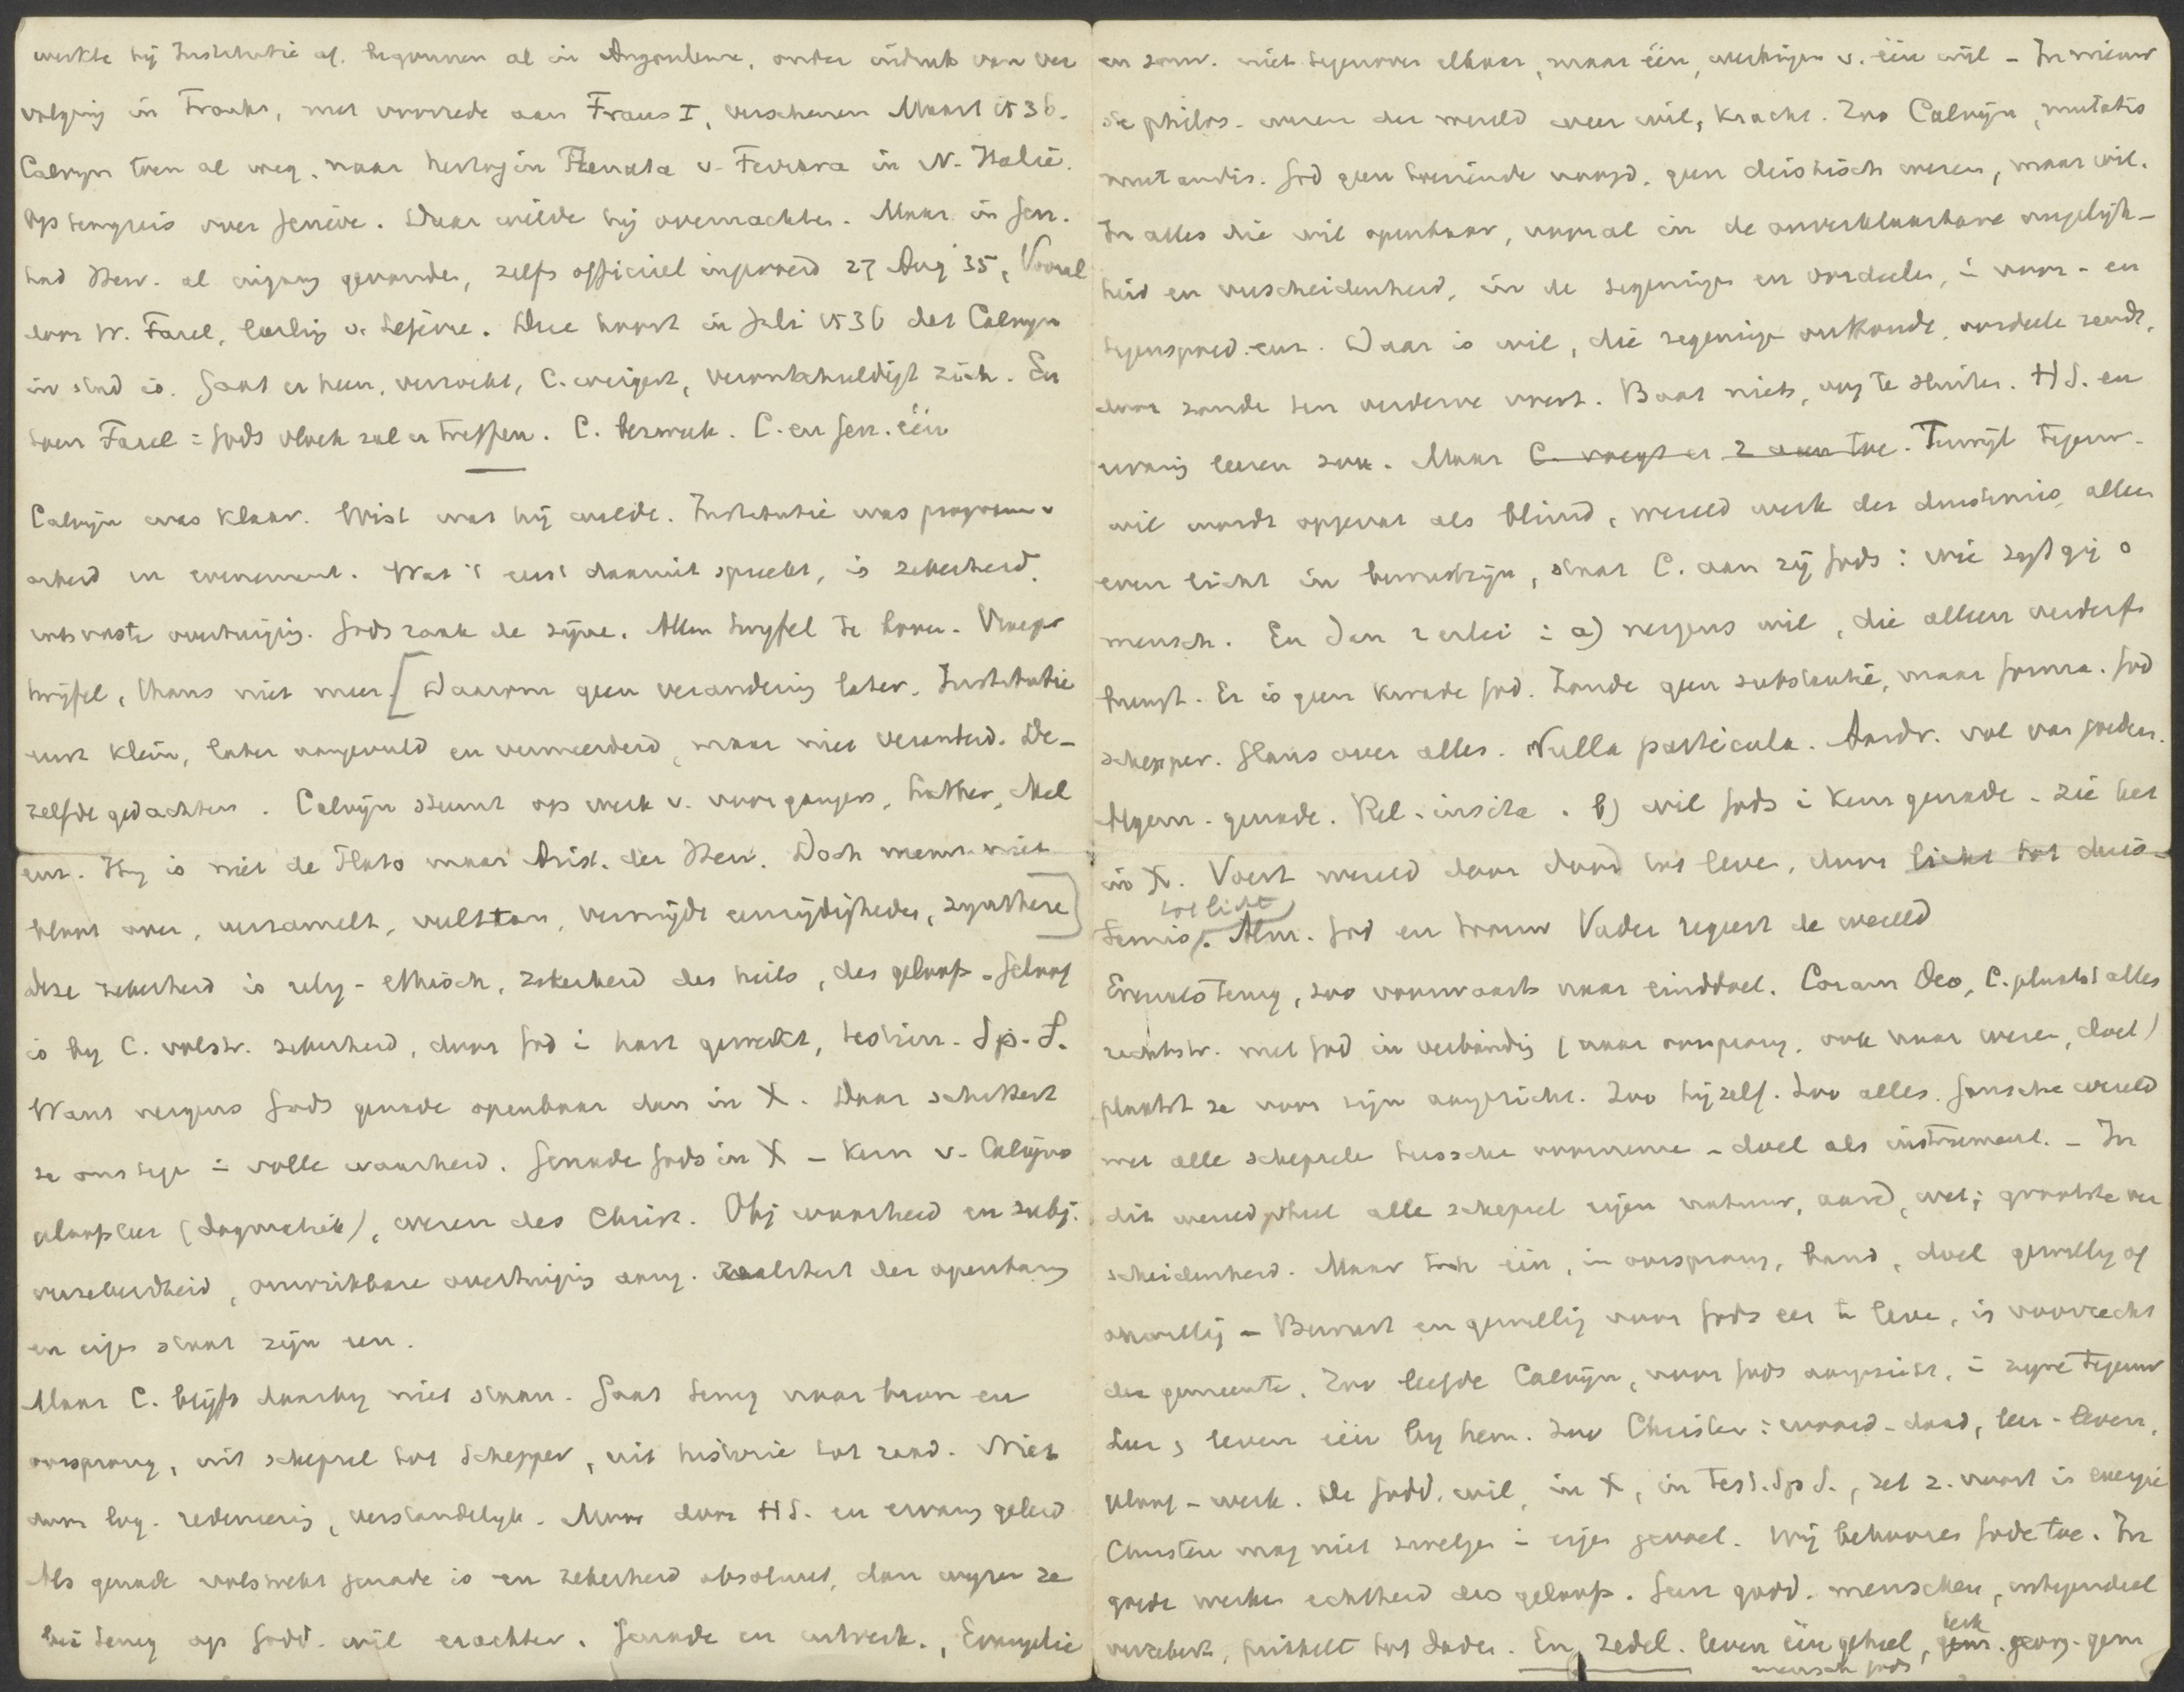 werkte hij Institutie af. begonnen al in Angouleme, onder indruk van ver
volging in Frankr, met voorrede aan Frans I, verschenen Maart 1536.
Calvyn toen al weg, naar hertogin Renata v. Ferrara in N. Italië.
Op terugreis over Genève. Daar wilde hij overnachten. Maar in Gen.
had Herv. al ingang gevonden, zelfs officieel ingevoerd 27 Aug 35, Vooral
door W. Farel, leerling v. Lefèvre. Die hoort in Juli 1536 dat Calvyn
in stad is. Gaat er heen, verzoekt, C. weigert, verontschuldigt zich. En
toen Farel: Gods vloek zal u treffen. C. bezweek. C. en Gen. één
Calvijn was klaar. Wist wat hij wilde. Institutie was program v
arbeid en evenement. Wat 't eerst daaruit spreekt, is zekerheid,
vaste overtuiging. Gods zaak de zijne. Allen twyfel te boven. Vroeger
twijfel, thans niet meer. [Daarom geen verandering later. Institutie
eerst klein, later aangevuld en vermeerderd, maar niet veranderd. De-
zelfde gedachten. Calvijn steunt op werk v. voorgangers, Luther, Mel
enz. Hij is niet de Plato maar Arist. der Herv. Doch neemt niet
klaar over, verzamelt, vult aan, vermijdt eenzijdigheden, synthese]
Deze zekerheid is relig-ethisch, zekerheid des heils, des geloofs. Geloof
is by C. volstr. zekerheid, door God i hart gewerkt, testim. Sp. S.
Want nergens Gods genade openbaar dan in X. Daar schittert
ze ons tege i volle waarheid. Genade Gods in X - kern v. Calvijns
geloofsleer (dogmatiek), wezen des Chr. Obj waarheid en subj.
verzekerdheid, onwrikbare overtuiging aang. realiteit der openbaring
en eigen staat zijn een.
Maar C. blijft daarby niet staan. Gaat terug naar bron en
oorsprong, uit schepsel tot Schepper, uit historie tot raad. Niet
door log. redeneering, verstandelyk. Maar door HS. en ervaring geleid
Als genade volstrekt genade is en zekerheid absoluut, dan wyzen ze
beï terug op Godd. wil erachter. Genade en uitverk., Evangelie
en souv. niet tegenover elkaar, maar één, werkingen v. één wil - In nieuw
ste philos. wezen der wereld weer wil, kracht. Zoo Calvijn, mutatis
mutandis. God geen treurende voogd, geen deistisch wezen, maar wil.
In alles die wil openbaar, vooral in de onverklaarbare ongelijk-
heid en verscheidenheid, in de zegeningen en oordeelen, i voor- en
tegenspoed enz. Daar is wil, die zegeningen onthoudt, oordeelen zendt,
door zonde ten verderve voert. Baat niets, oog te sluiten. HS. en
ervaring leeren zoo. Maar C. voegt er 2 aan toe. Terwijl tegenw.
wil wordt opgevat als blind, wereld werk der duisternis, alleen
even licht in bewustzijn, staat C. aan zij Gods: wie zegt gij o
mensch. En dan 2 erlei: a) nergens wil, die alleen verderf
brengt. Er is geen kwade God. Zonde geen substantie, maar forma. God
schepper. Glans over alles. Nulla particula. Aardr. vol van goedert.
Algem. genade. Rel. insita. b) wil Gods i kern genade. Zie het
in X. Voert wereld door dood tot leven, door licht tot duis-
ternis, tot licht Alm. God en trouw Vader regeert de wereld
Evenals terug, zoo voorwaarts naar einddoel. Coram Deo, C. plaatst alles
rechtstr. met God in verbinding (naar oorsprong, ook naar wezen, doel)
plaatst ze voor zijn aangezicht. Zoo hijzelf. Zoo alles. Gansche wereld
met alle schepselen tusschen voornemen - doel als instrument. - In
dit wereldgeheel alle schepsel eigen natuur, aard, wet; grootste ver
scheidenheid. Maar toch één, in oorsprong, band, doel gewillig of
onwillig - Bewust en gewillig voor Gods eer te leven, is voorrecht
der gemeente. Zoo leefde Calvijn, voor Gods aangezicht, i zijne tegenw
Leer, leven één by hem. Zoo Christen: woord-daad, leer-leven,
geloof-werk. De Godd. wil, in X, in Test. Sp S., zet z. voort is energie
Christen mag niet zwelgen i eigen gevoel. Wij behooren Gode toe. In
goede werken echtheid des geloofs. Geen godd. menschen, integendeel
verzekert, prikkelt tot daden. En zedel. leven één geheel, kerk
mensch Gods